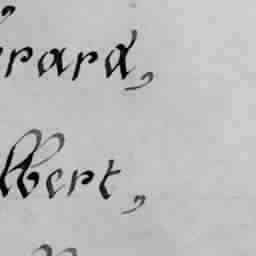 érard,
lbert,